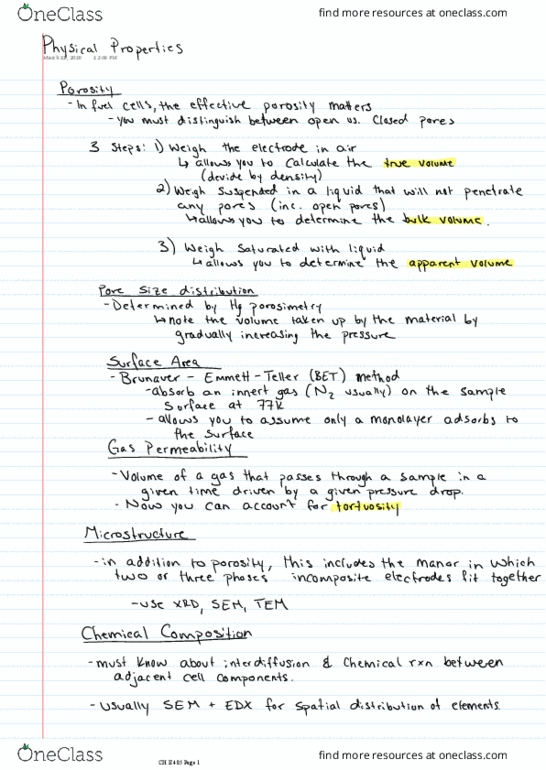 OneClass
find more resources at oneclass.com
Physical Properties
Porosity
- In fuel cells, the effective porosity matters
- you must distinguish between open vs. closed pores
3 Steps: 1) Weigh the electrode in air
↳ allows you to calculate the true volume
(devide by density)
2) Weigh suspended in a liquid that will not penetrate
any pores (inc. open pores)
↳ allows you to determine the bulk volume.
3) Weigh saturated with liquid
↳ allows you to determine the apparent volume
Pore Size distribution
- Determined by Hg porosimetry
↳ note the volume taken up by the material by
gradually increasing the pressure
Surface Area
- Brunauer - Emmett - Teller (BET) method
- absorb an innert gas (N2 usually) on the sample
surface at 77K
- allows you to assume only a monolayer adsorbs to
the surface
Gas Permeability
- Volume of a gas that passes through a sample in a
given time driven by a given pressure drop.
- Now you can account for tortuosity
Microstructure
- in addition to porosity, this includes the manor in which
two or three phases incomposite electrodes fit together
- use XRD, SEM, TEM
Chemical Composition
- must know about interdiffusion & chemical rxn between
adjacent cell components.
- Usually SEM + EDX for spatial distribution of elements
OneClass
CH E 485 Page 1
find more resources at oneclass.com